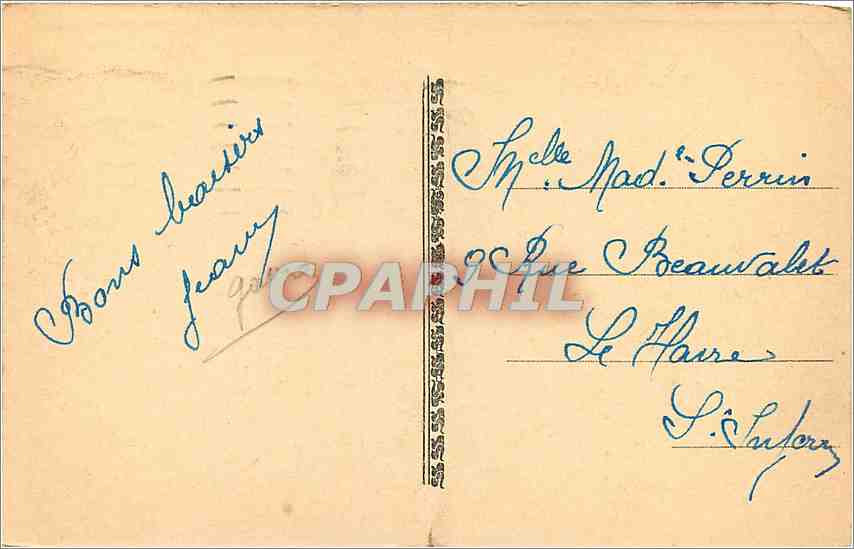 Bons baisers
Jeany
CPAPHIL
Melle Made. Perrin
9 Rue Beauvalet
Le Havre
Se. Infer